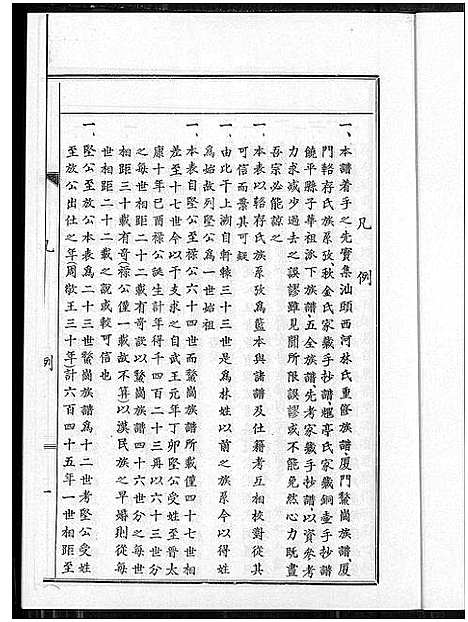 凡例
一、本譜着手之先實集汕頭西河林氏重修族譜、厦門鰲崗族譜、厦
門輅存氏族系攷、秋金氏家藏手抄譜、耀亭氏家藏銅壺手抄譜
饒平縣子華祖派下族譜、五全族譜先考家藏手抄譜、以資參考
力求減少過去之誤謬雖見聞所限誤謬或不能免然心力既盡
吾宗必能諒之
一、本表以輅存氏族系攷為藍本與諸譜及仕籍考互相核對從其
可信而棄其可疑
一、由比干上溯自軒轅三十三世是為林姓以前之族系今以得姓
為始故列堅公為一世始祖
一、本表自堅公至祿公六十四世而鰲崗族譜所載僅四十七世相
差至十七世今以干支求之自武王元年丁卯堅公受姓至晉太
康十年己酉祿公誕生計年得千四百二十三再以六十三世分
之每世相距二十二載有奇設以鰲崗族譜四十六世分之則每
世相距三十載有奇(祿公僅一載故不算)以漢民族之早婚則從每
世相距二十二載之說或較可信也
一、堅公至放公本表為二十三世鰲崗族譜為十二世考堅公受姓
至放公出仕之年(周敬王三十年)計六百四十五年一世相距至
凡例
一